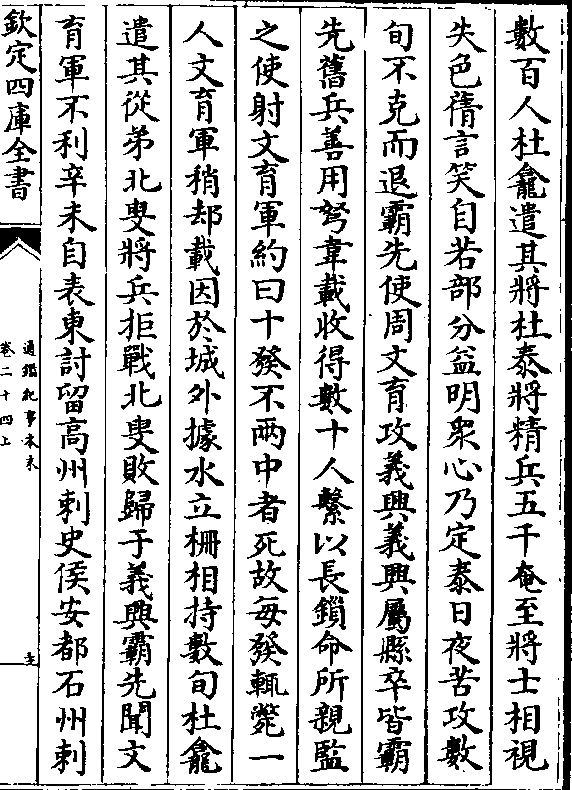 數百人杜龕遣其將杜泰將精兵五千奄至將士相視
失色蒨言笑自若部分益明衆心乃定泰日夜苦攻數
旬不克而退霸先使周文育攻義興義興屬縣卒皆霸
先舊兵善用弩韋載收得數十人繫以長鎖命所親監
之使射文育軍約曰十發不兩中者死故每發輒斃一
人文育軍稍却載因於城外據水立柵相持數旬杜龕
遣其從弟北叟將兵拒戰北叟敗歸于義興霸先聞文
育軍不利辛未自表東討留高州刺史侯安都石州刺
欽定四庫全書
通鑑紀事本末
卷二十四上